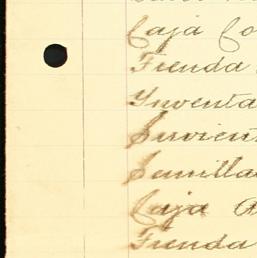 Caja Co
Tienda
Inventa
Sirvient
Semilla
Caja a
Tienda